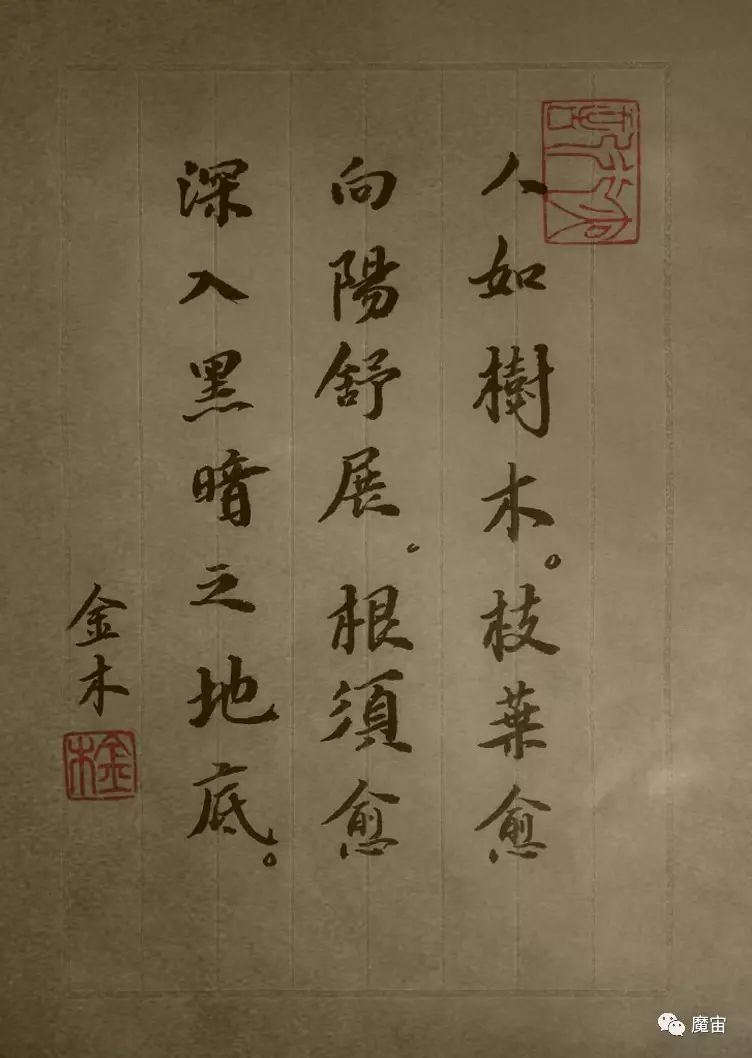 人如樹木。枝葉愈
向陽舒展。根須愈
深入黑暗之地底。
金木
金木
魔宙